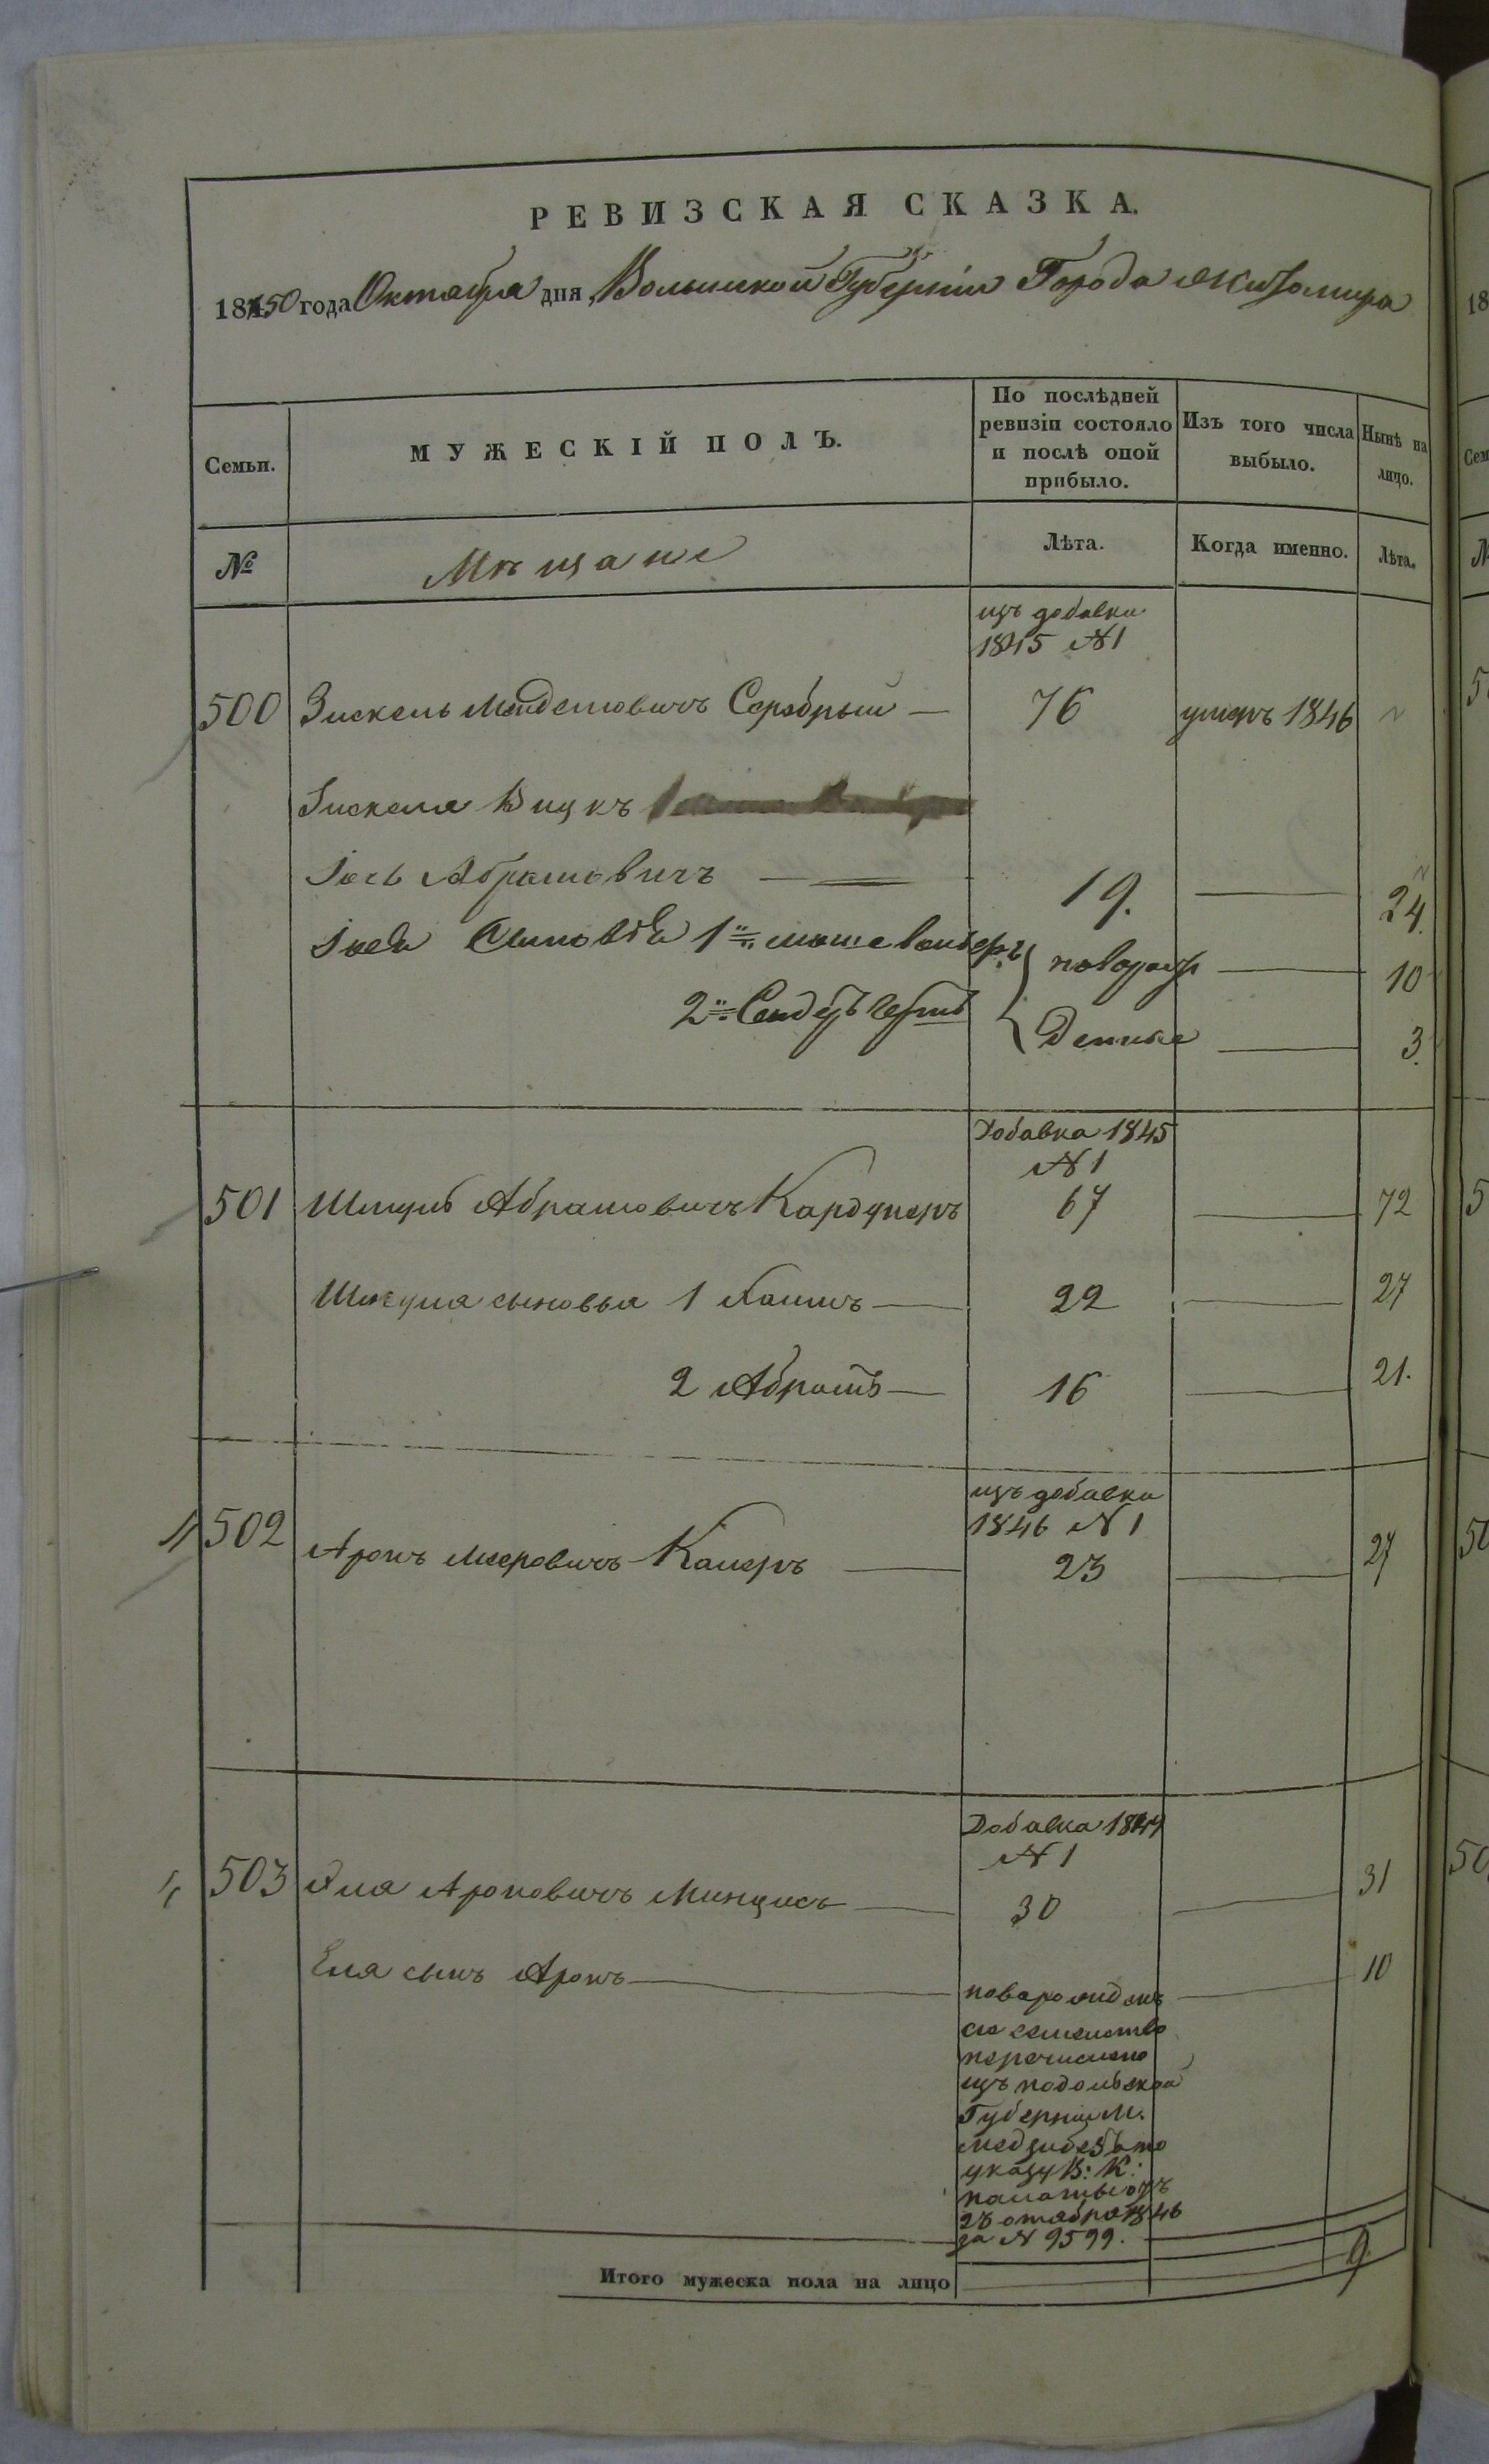 РЕВИЗСКАЯ СКАЗКА.
1850 года Октября дня, Волынской Губерніи Города Житомира
Семьи. МУЖЕСКІЙ ПОЛЪ. По послѣдней ревизіи состояло и послѣ оной прибыло. Изъ того числа выбыло. Нынѣ на лицо.
№ Мѣщане Лѣта. Когда именно. Лѣта.
изъ добавки
1845 №1
500 Зискель Серебрый — 76 умеръ 1846
Зискеля Внукъ
Іось Абрамовичъ — 19. — 24
Сыновья 1й новорож — 10
2й денные — 3.
Добавка 1845
№ 1
501 Шмуль Абрамовичъ 67 — 72
Шмуля сыновья 1 Хаимъ — 22 — 27
2 Абрамъ — 16 — 21.
изъ добавки
1846 № 1
502 Аронъ Мееровичъ — 23 — 27
Добавка 1844
№ 1
503 Эля Ароновичъ — 30 — 31
Еля сынъ Аронъ — новорожденъ — 10
сіе семейство
перечислено
изъ Подольской
Губерніи М.
по
указу В: К:
палаты отъ
1846
за № 9599.
Итого мужеска пола на лицо 9